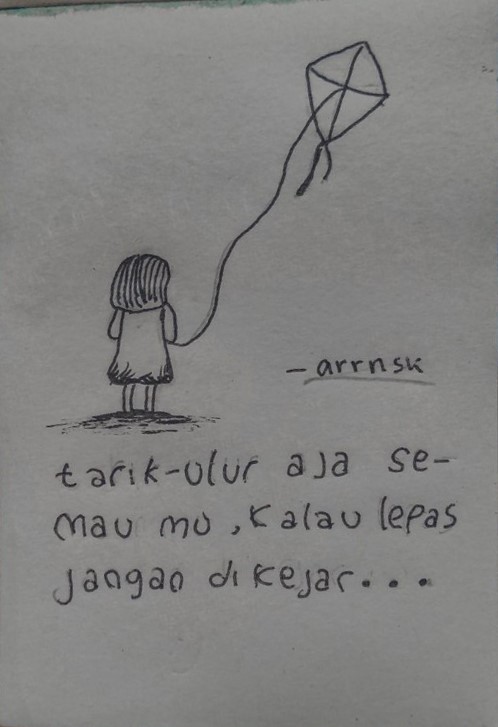 -arrnsk
tarik-ulur aja se-
mau mu, kalau lepas
jangan dikejar...